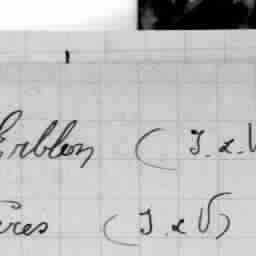 Erblon (I. & V
ères (I & V)